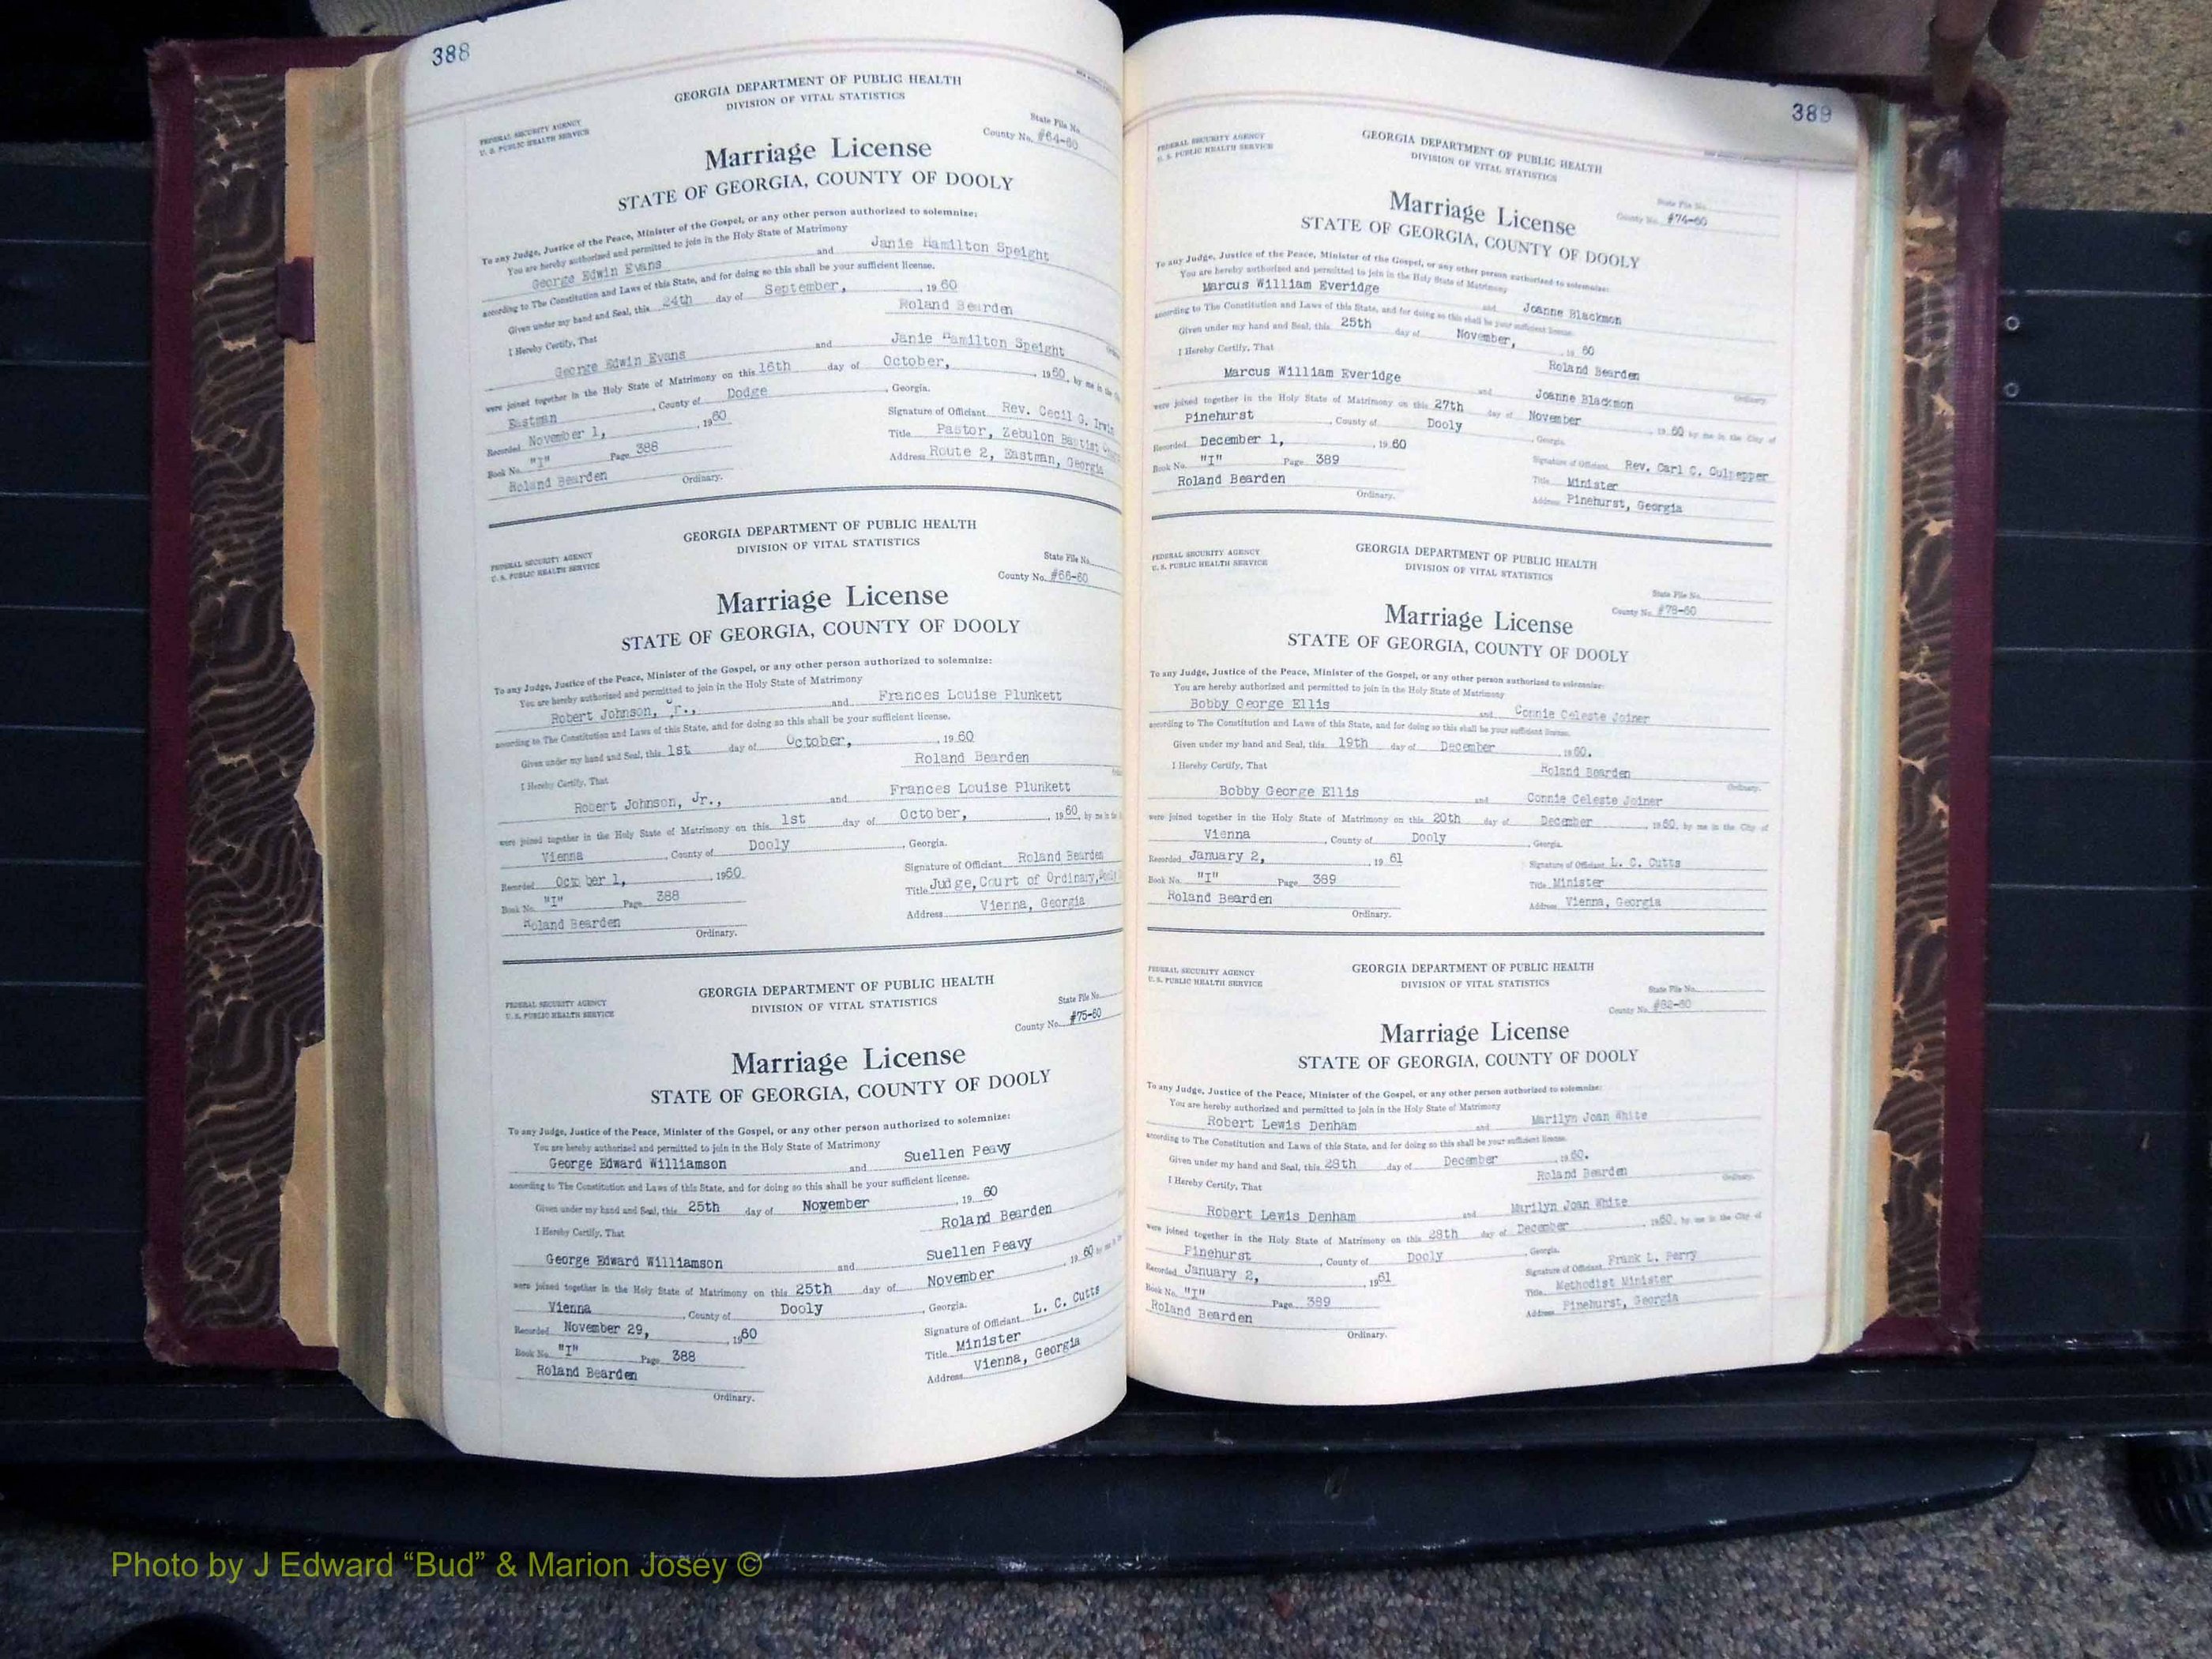 388
GEORGIA DEPARTMENT OF PUBLIC HEALTH
DIVISION OF VITAL STATISTICS
FEDERAL SECURITY AGENCY
U. S. PUBLIC HEALTH SERVICE
State File No.
County No. #64-60
Marriage License
STATE OF GEORGIA, COUNTY OF DOOLY
To any Judge, Justice of the Peace, Minister of the Gospel, or any other person authorized to solemnize:
You are hereby authorized and permitted to join in the Holy State of Matrimony
George Edwin Evans and Janie Hamilton Speight
according to The Constitution and Laws of this State, and for doing so this shall be your sufficient license.
Given under my hand and Seal, this 24th day of September, 1960
Roland Bearden
I Hereby Certify, That
George Edwin Evans and Janie Hamilton Speight
were joined together in the Holy State of Matrimony on this 16th day of October, 1960, by me in the
Eastman, County of Dodge, Georgia.
Recorded November 1, 1960
Signature of Officiant Rev. Cecil G. Irwin
Book No. "I" Page 388
Title Pastor, Zebulon Baptist
Roland Bearden
Address Route 2, Eastman, Georgia
Ordinary.
GEORGIA DEPARTMENT OF PUBLIC HEALTH
DIVISION OF VITAL STATISTICS
FEDERAL SECURITY AGENCY
U. S. PUBLIC HEALTH SERVICE
State File No.
County No. #66-60
Marriage License
STATE OF GEORGIA, COUNTY OF DOOLY
To any Judge, Justice of the Peace, Minister of the Gospel, or any other person authorized to solemnize:
You are hereby authorized and permitted to join in the Holy State of Matrimony
Robert Johnson, Jr., and Frances Louise Plunkett
according to The Constitution and Laws of this State, and for doing so this shall be your sufficient license.
Given under my hand and Seal, this 1st day of October, 1960
Roland Bearden
I Hereby Certify, That
Robert Johnson, Jr., and Frances Louise Plunkett
were joined together in the Holy State of Matrimony on this 1st day of October, 1960, by me in the
Vienna, County of Dooly, Georgia.
Recorded October 1, 1960
Signature of Officiant Roland Bearden
Book No. "I" Page 388
Title Judge, Court of Ordinary,
Roland Bearden
Address Vienna, Georgia
Ordinary.
GEORGIA DEPARTMENT OF PUBLIC HEALTH
DIVISION OF VITAL STATISTICS
FEDERAL SECURITY AGENCY
U. S. PUBLIC HEALTH SERVICE
State File No.
County No. #75-60
Marriage License
STATE OF GEORGIA, COUNTY OF DOOLY
To any Judge, Justice of the Peace, Minister of the Gospel, or any other person authorized to solemnize:
You are hereby authorized and permitted to join in the Holy State of Matrimony
George Edward Williamson and Suellen Peavy
according to The Constitution and Laws of this State, and for doing so this shall be your sufficient license.
Given under my hand and Seal, this 25th day of November 1960
Roland Bearden
I Hereby Certify, That
George Edward Williamson and Suellen Peavy
were joined together in the Holy State of Matrimony on this 25th day of November 1960 by me
Vienna, County of Dooly, Georgia.
Recorded November 29, 1960
Signature of Officiant L. C. Cutts
Book No. "I" Page 388
Title Minister
Roland Bearden
Address Vienna, Georgia
Ordinary.
389
FEDERAL SECURITY AGENCY
U. S. PUBLIC HEALTH SERVICE
GEORGIA DEPARTMENT OF PUBLIC HEALTH
DIVISION OF VITAL STATISTICS
State File No.
County No. #74-60
Marriage License
STATE OF GEORGIA, COUNTY OF DOOLY
To any Judge, Justice of the Peace, Minister of the Gospel, or any other person authorized to solemnize:
You are hereby authorized and permitted to join in the Holy State of Matrimony
Marcus William Everidge and Joanne Blackmon
according to The Constitution and Laws of this State, and for doing so this shall be your sufficient license.
Given under my hand and Seal, this 25th day of November, 1960
Roland Bearden
I Hereby Certify, That
Ordinary.
Marcus William Everidge and Joanne Blackmon
were joined together in the Holy State of Matrimony on this 27th day of November 1960 by me in the City of
Pinehurst, County of Dooly, Georgia.
Recorded December 1, 1960
Signature of Officiant Rev. Carl C. Culpepper
Book No. "I" Page 389
Title Minister
Roland Bearden
Address Pinehurst, Georgia
Ordinary.
FEDERAL SECURITY AGENCY
U. S. PUBLIC HEALTH SERVICE
GEORGIA DEPARTMENT OF PUBLIC HEALTH
DIVISION OF VITAL STATISTICS
State File No.
County No. #78-60
Marriage License
STATE OF GEORGIA, COUNTY OF DOOLY
To any Judge, Justice of the Peace, Minister of the Gospel, or any other person authorized to solemnize:
You are hereby authorized and permitted to join in the Holy State of Matrimony
Bobby George Ellis and Connie Celeste Joiner
according to The Constitution and Laws of this State, and for doing so this shall be your sufficient license.
Given under my hand and Seal, this 19th day of December 1960.
Roland Bearden
I Hereby Certify, That
Ordinary.
Bobby George Ellis and Connie Celeste Joiner
were joined together in the Holy State of Matrimony on this 20th day of December, 1960, by me in the City of
Vienna, County of Dooly, Georgia.
Recorded January 2, 1961
Signature of Officiant L. C. Cutts
Book No. "I" Page 389
Title Minister
Roland Bearden
Address Vienna, Georgia
Ordinary.
FEDERAL SECURITY AGENCY
U. S. PUBLIC HEALTH SERVICE
GEORGIA DEPARTMENT OF PUBLIC HEALTH
DIVISION OF VITAL STATISTICS
State File No.
County No. #82-60
Marriage License
STATE OF GEORGIA, COUNTY OF DOOLY
To any Judge, Justice of the Peace, Minister of the Gospel, or any other person authorized to solemnize:
You are hereby authorized and permitted to join in the Holy State of Matrimony
Robert Lewis Denham and Marilyn Joan White
according to The Constitution and Laws of this State, and for doing so this shall be your sufficient license.
Given under my hand and Seal, this 28th day of December, 1960.
Roland Bearden
I Hereby Certify, That
Ordinary.
Robert Lewis Denham and Marilyn Joan White
were joined together in the Holy State of Matrimony on this 28th day of December, 1960, by me in the City of
Pinehurst, County of Dooly, Georgia.
Recorded January 2, 1961
Signature of Officiant Frank L. Perry
Book No. "I" Page 389
Title Methodist Minister
Roland Bearden
Address Pinehurst, Georgia
Ordinary.
Photo by J Edward “Bud” & Marion Josey ©